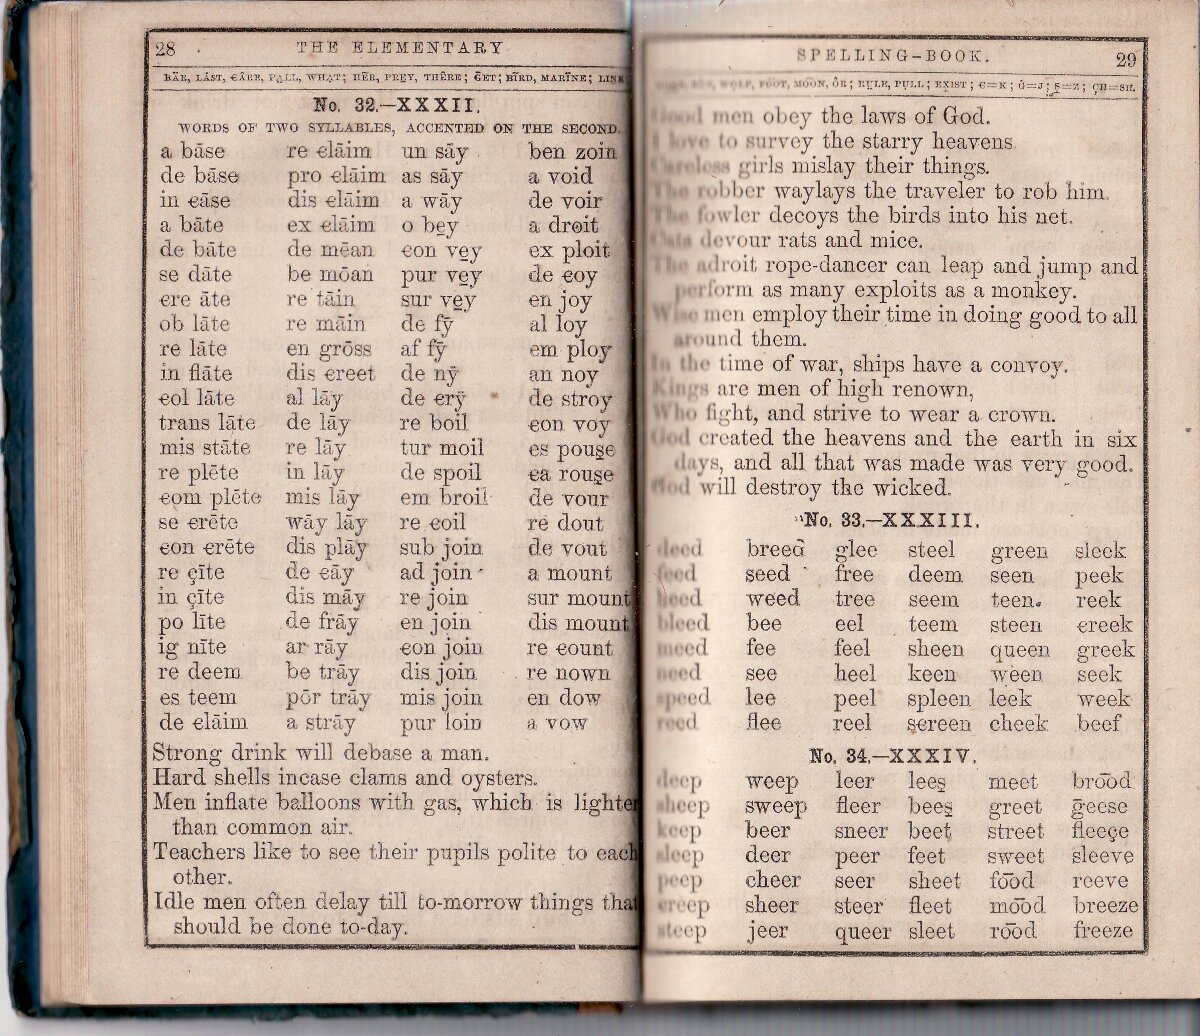 28 THE ELEMENTARY
BÄR, LÅST, €ÂRE, FA̤LL, WHA̤T; HẼR, PREY̱, THÊRE; ḠET; BĪRD, MARÏNE; LINK
No. 32.—XXXII.
WORDS OF TWO SYLLABLES, ACCENTED ON THE SECOND.
a bāse re €lāim un sāy ben zoin
de bāse pro €lāim as sāy a void
in €āse dis €lāim a wāy de voir
a bāte ex €lāim o be̱y a droit
de bāte de mēan €on ve̱y ex ploit
se dāte be mōan pur ve̱y de €oy
€re āte re tāin sur ve̱y en joy
ob lāte re māin de fȳ al loy
re lāte en grōss af fȳ em ploy
in flāte dis €reet de nȳ an noy
€ol lāte al lāy de €rȳ de stroy
trans lāte de lāy re boil €on voy
mis stāte re lāy tur moil es pous̱e
re plēte in lāy de spoil €a rous̱e
€om plēte mis lāy em broil de vour
se €rēte wāy lāy re €oil re dout
€on €rēte dis plāy sub join de vout
re çīte de €āy ad join a mount
in çīte dis māy re join sur mount
po līte de frāy en join dis mount
ig nīte ar rāy €on join re €ount
re deem be trāy dis join re nown
es teem pōr trāy mis join en dow
de €lāim a strāy pur loin a vow
Strong drink will debase a man.
Hard shells incase clams and oysters.
Men inflate balloons with gas, which is lighter
than common air.
Teachers like to see their pupils polite to each
other.
Idle men often delay till to-morrow things that
should be done to-day.
SPELLING-BOOK. 29
WOLF, FO͝OT, MO͞ON, ÔR; RṲLE, PṲLL; EX̱IST; €=K; Ġ=J; S̱=Z; ÇH=SH.
Good men obey the laws of God.
I love to survey the starry heavens.
Careless girls mislay their things.
The robber waylays the traveler to rob him.
The fowler decoys the birds into his net.
Cats devour rats and mice.
The adroit rope-dancer can leap and jump and
perform as many exploits as a monkey.
Wise men employ their time in doing good to all
around them.
In the time of war, ships have a convoy.
Kings are men of high renown,
Who fight, and strive to wear a crown.
God created the heavens and the earth in six
days, and all that was made was very good.
God will destroy the wicked.
No. 33.—XXXIII.
deed breed glee steel green sleek
feed seed free deem seen peek
heed weed tree seem teen reek
bleed bee eel teem steen €reek
meed fee feel sheen queen greek
need see heel keen ween seek
speed lee peel spleen leek week
reed flee reel s€reen cheek beef
No. 34.—XXXIV.
deep weep leer lees̱ meet bro͞od
sheep sweep fleer bees̱ greet ḡeese
keep beer sneer beet street fleeçe
sleep deer peer feet sweet sleeve
peep cheer seer sheet fo͞od reeve
creep sheer steer fleet mo͞od breeze
steep jeer queer sleet ro͞od freeze